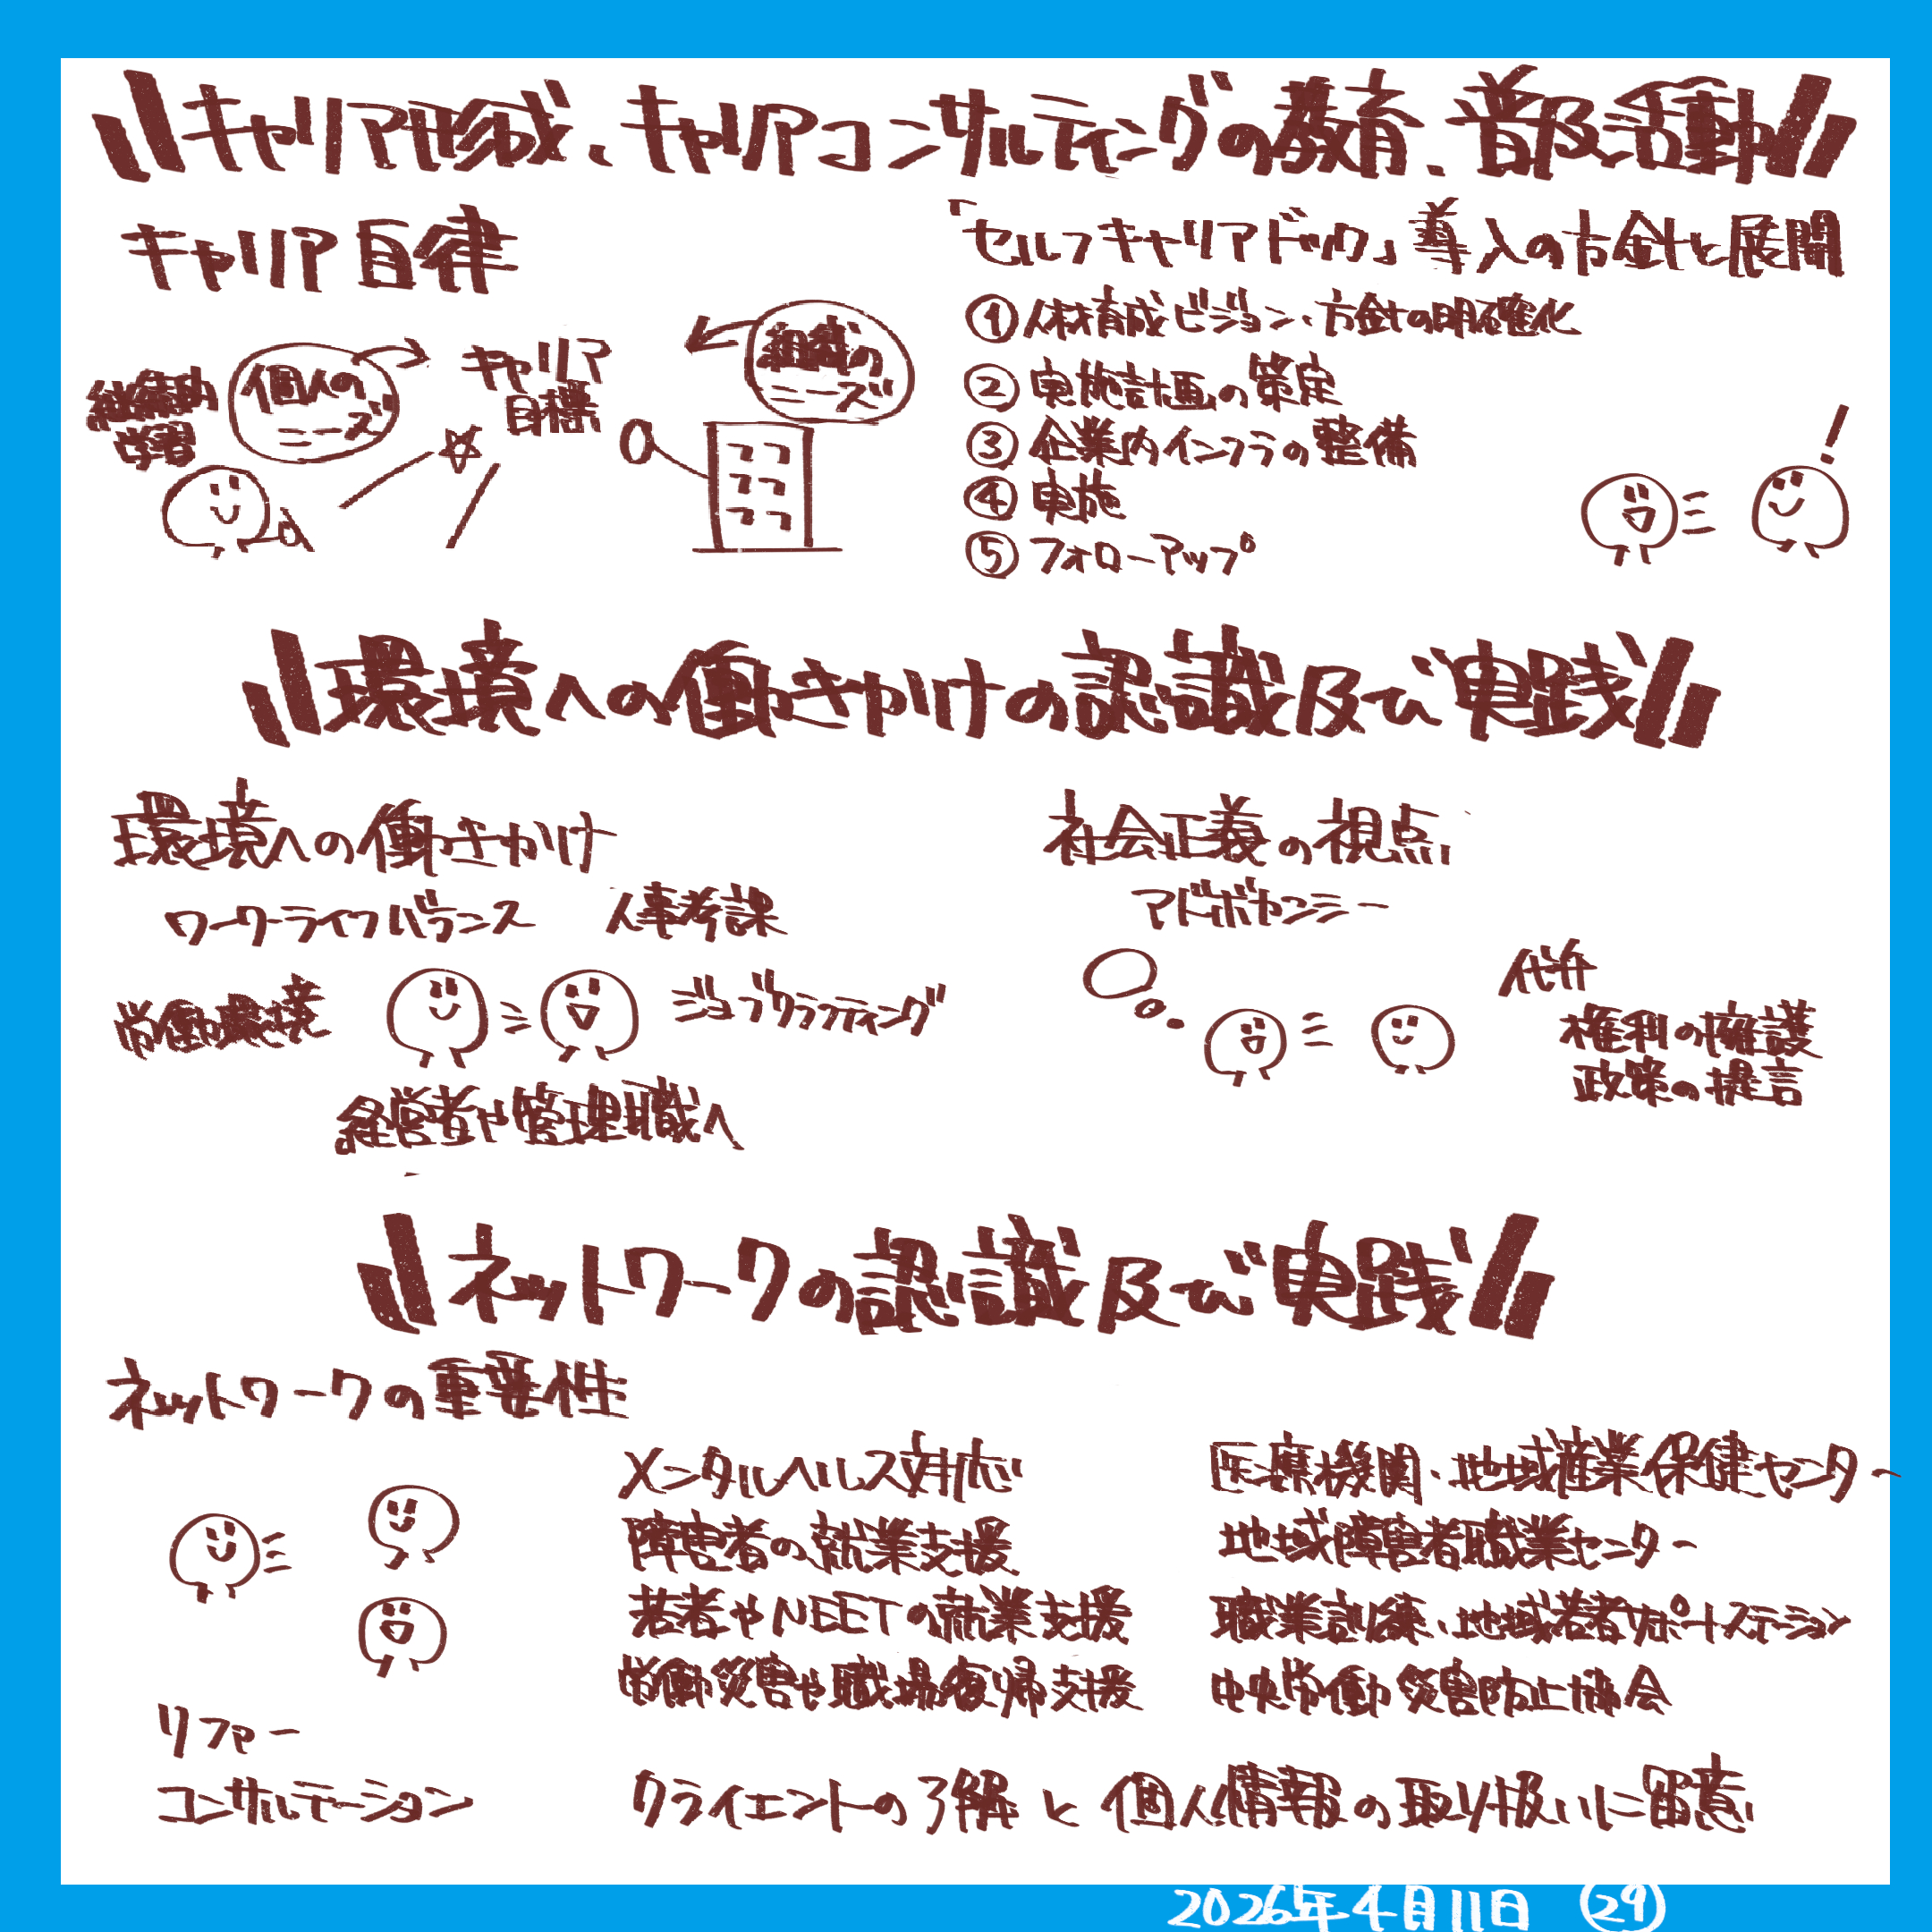 キャリア形成、キャリアコンサルティングの教育、普及活動
キャリア自律
継続的
学習
個人の
ニーズ
キャリア
目標
組織の
ニーズ
「セルフキャリアドック」導入の方針と展開
①人材育成ビジョン・方針の明確化
②実施計画の策定
③企業内インフラの整備
④実施
⑤フォローアップ
環境への働きかけの認識及び実践
環境への働きかけ
ワークライフバランス 人事考課
労働環境
ジョブクラフティング
経営者や管理職へ
社会正義の視点
アドボカシー
代弁
権利の擁護
政策の提言
ネットワークの認識及び実践
ネットワークの重要性
メンタルヘルス対応 医療機関・地域産業保健センター
障害者の就業支援 地域障害者職業センター
若者やNEETの就業支援 職業訓練・地域若者サポートステーション
労働災害や職場復帰支援 中央労働災害防止協会
リファー
コンサルテーション
クライエントの了解と個人情報の取り扱いに留意
2026年4月11日 ㉙